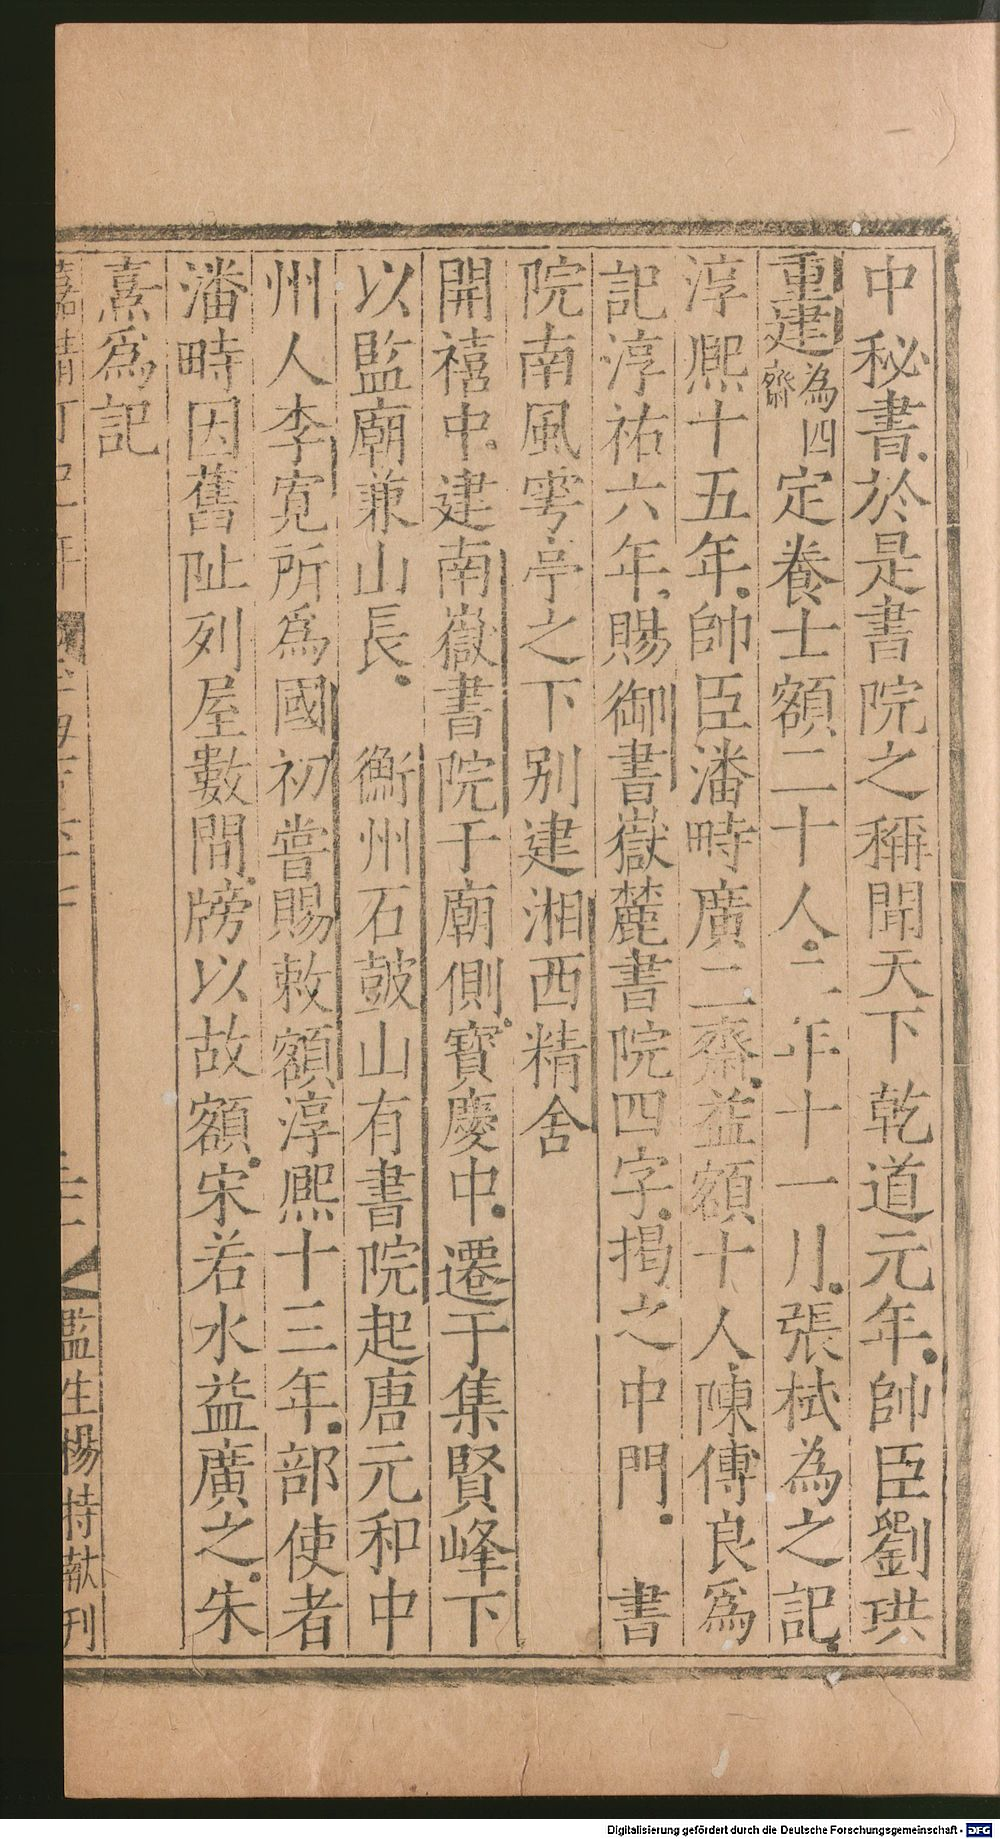 中秘書於是書院之稱聞天下乾道元年帥臣劉珙
重建為四齋定養士額二十人二年十一月張栻為之記
淳熙十五年帥臣潘畤廣二齋益額十人陳傅良爲
記淳祐六年賜御書嶽麓書院四字揭之中門 書
院南風雩亭之下別建湘西精舍
開禧中建南嶽書院于廟側寶慶中遷于集賢峰下
以監廟兼山長 衡州石鼓山有書院起唐元和中
州人李寬所爲國初嘗賜敕額淳熙十三年部使者
潘畤因舊址列屋數間牓以故額宋若水益廣之朱
熹爲記
監生楊持献刊
Digitalisierung gefördert durch die Deutsche Forschungsgemeinschaft - DFG